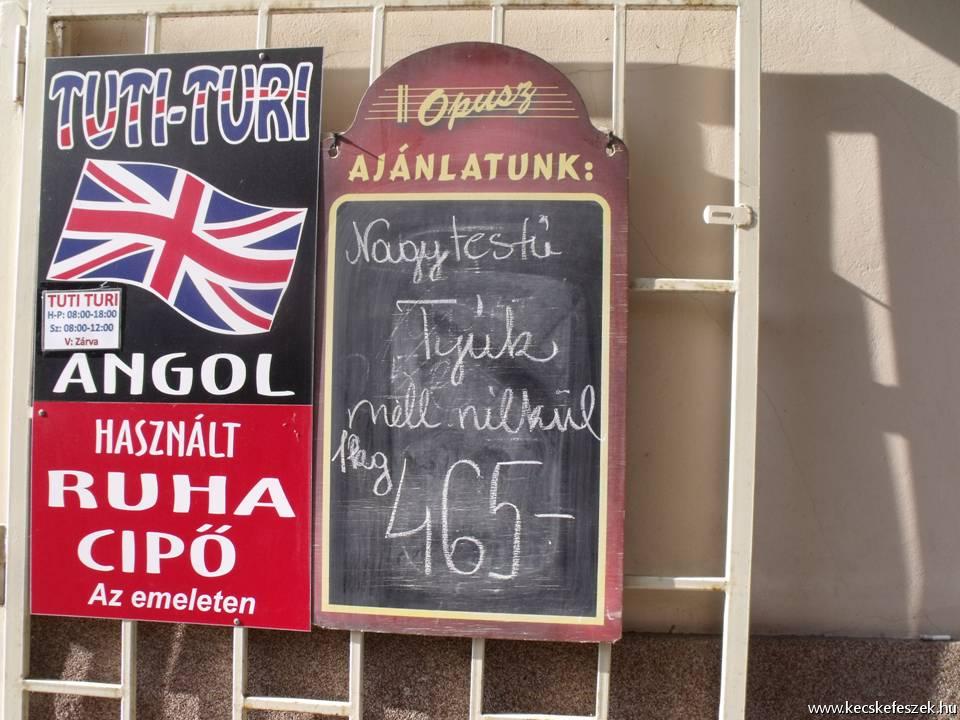 TUTI-TURI
TUTI TURI
H-P: 08:00-18:00
Sz: 08:00-12:00
V: Zárva
ANGOL
HASZNÁLT
RUHA
CIPŐ
Az emeleten
Opusz
AJÁNLATUNK:
Nagytestű
Tyúk
mell nélkül
1kg
465-
www.kecskefeszek.hu